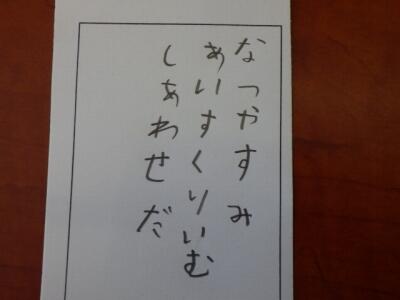 なつやすみ
あいすくりいむ
しあわせだ